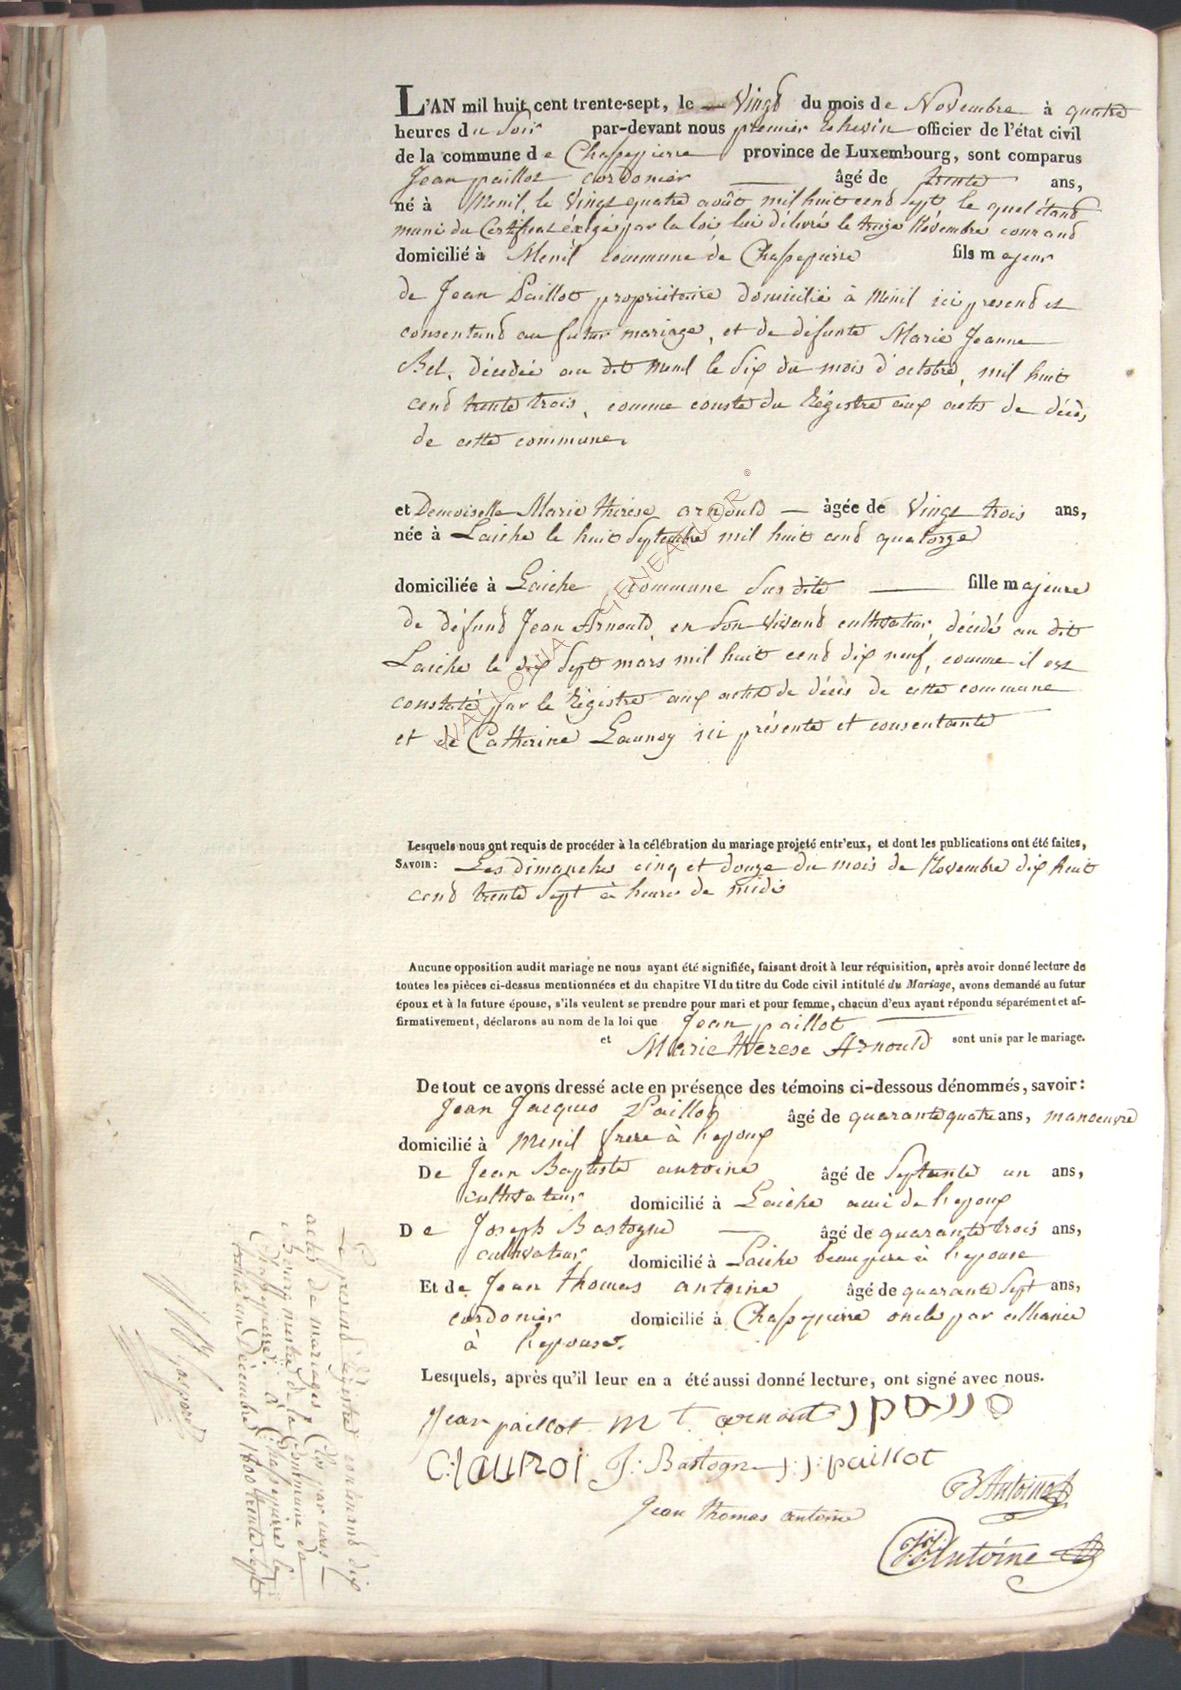 L'AN mil huit cent trente-sept, le Vingt du mois de Novembre à quatre
heures du Soir par-devant nous premier Echevin officier de l'état civil
de la commune de Chassepierre province de Luxembourg, sont comparus
Jean paillot cordonier âgé de trente ans,
né à Menil, le Vingt quatre août mil huit cend Sept le quel étand
muni du Certificat éxigé par la loi lui délivré le treize Novembre courand
domicilié à Menil commune de Chassepierre fils majeur
de Jean Paillot propriétaire domicilié à Menil ici presend et
consentand au futur mariage, et de défunte Marie Jeanne
Bel, décédée au dit Menil le Six du mois d'octobre, mil huit
cend trente trois, comme conste du Régistre aux actes de décès,
de cette commune.
et Demoiselle Marie thérèse arnould âgée de Vingt trois ans,
née à Laiche le huit Septembre mil huit cend quatorze
domiciliée à Laiche commune Sus dite fille majeure
de défund Jean Arnould, en Son vivand cultivateur, décédé au dit
Laiche le dix Sept mars mil huit cend dix neuf, comme il est
constaté par le Régistre aux actes de décès de cette commune
et de Catherine Launoy ici présente et consentante
WALLONIA GENEALOR ©
Lesquels nous ont requis de procéder à la célébration du mariage projeté entr'eux, et dont les publications ont été faites,
SAVOIR: Les dimanches cinq et douze du mois de Novembre dix huit
cend trente Sept à heures de midi
Aucune opposition audit mariage ne nous ayant été signifiée, faisant droit à leur réquisition, après avoir donné lecture de
toutes les pièces ci-dessus mentionnées et du chapitre VI du titre du Code civil intitulé du Mariage, avons demandé au futur
époux et à la future épouse, s'ils veulent se prendre pour mari et pour femme, chacun d'eux ayant répondu séparément et af-
firmativement, déclarons au nom de la loi que Jean paillot
et Marie therese Arnould sont unis par le mariage.
De tout ce avons dressé acte en présence des témoins ci-dessous dénommés, savoir:
Jean Jacques Paillot âgé de quarante quatre ans, manoeuvre
domicilié à Menil frere à l'epoux
De Jean Baptiste antoine âgé de Septante un ans,
cultivateur domicilié à Laiche ami de l'epoux
De Joseph Bastogne âgé de quarante trois ans,
cultivateur domicilié à Laiche beaupere à l'epouse
Et de Jean thomas antoine âgé de quarante Sept ans,
cordonier domicilié à Chassepierre oncle par alliance
à l'epouse.
Lesquels, après qu'il leur en a été aussi donné lecture, ont signé avec nous.
Jean paillot M t. arnould
C: launoi J: Bastogne j: j: paillot
JB Antoine
Jean thomas antoine
Antoine
Le presend Régistre contenand dix
actes de mariages, Clos par nous
Bourgmestre de la Commune de
Chassepierre. à Chassepierre le
trente un Décembre 1800 trente Sept